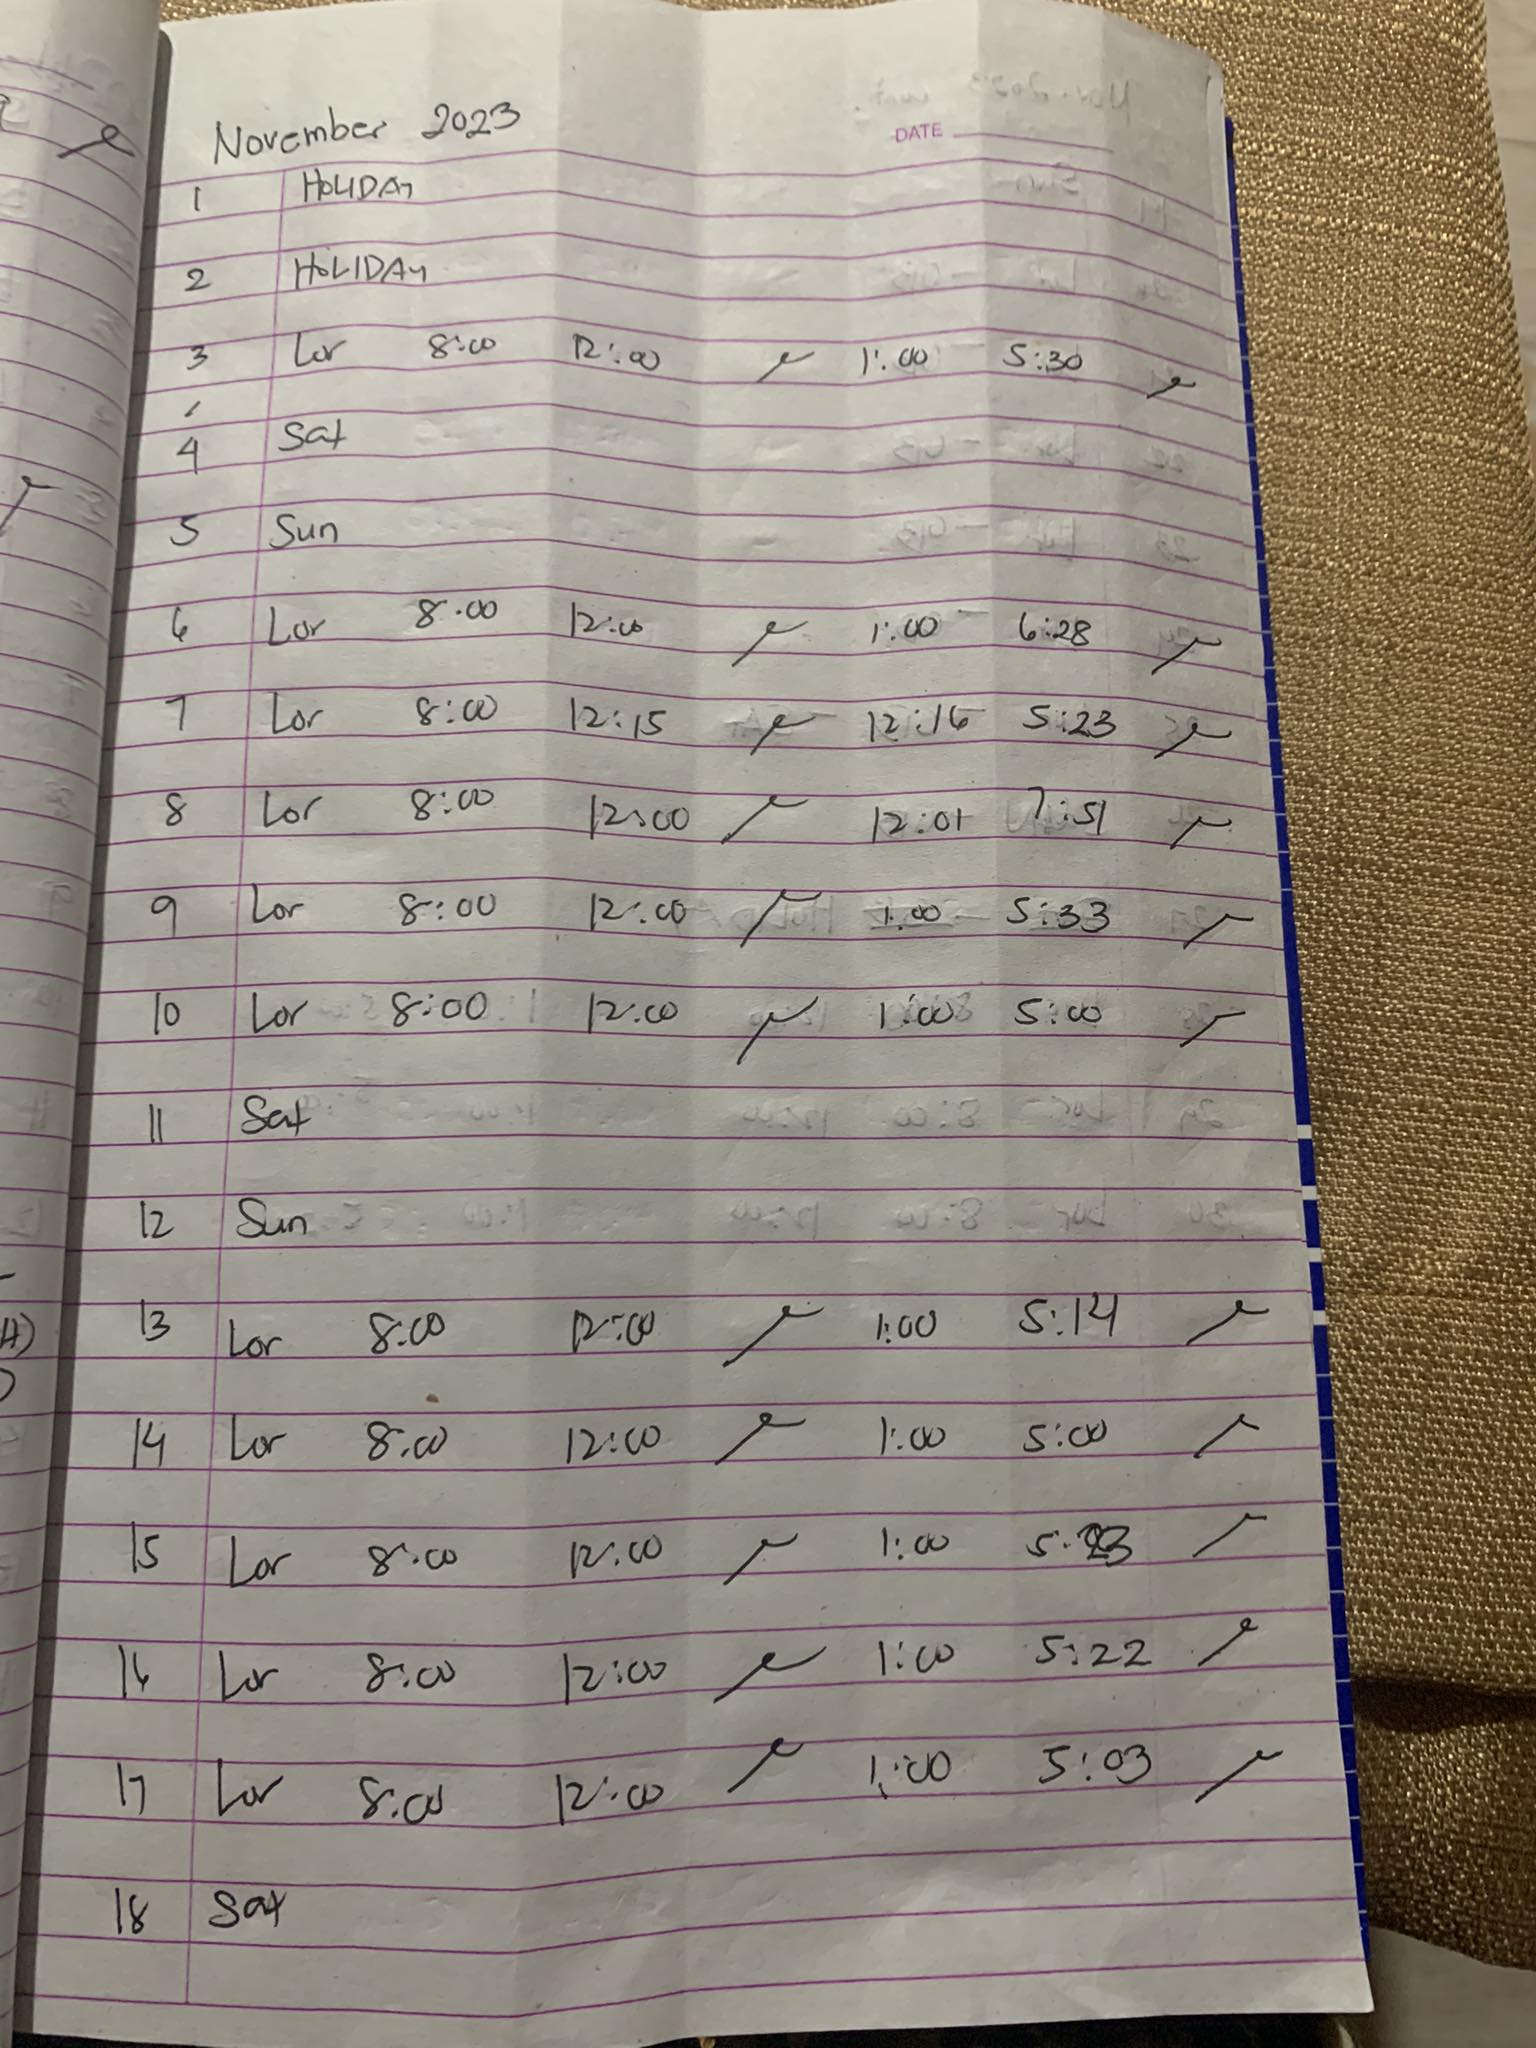 November 2023
DATE
1 HOLIDAY
2 HOLIDAY
3 Lor 8:00 12:00 1:00 5:30
4 Sat
5 Sun
6 Lor 8:00 12:00 1:00 6:28
7 Lor 8:00 12:15 12:16 5:23
8 Lor 8:00 12:00 12:01 7:51
9 Lor 8:00 12:00 1:00 5:33
10 Lor 8:00 12:00 1:00 5:00
11 Sat
12 Sun
13 Lor 8:00 12:00 1:00 5:14
14 Lor 8:00 12:00 1:00 5:00
15 Lor 8:00 12:00 1:00
16 Lor 8:00 12:00 1:00 5:22
17 Lor 8:00 12:00 1:00 5:03
18 Sat